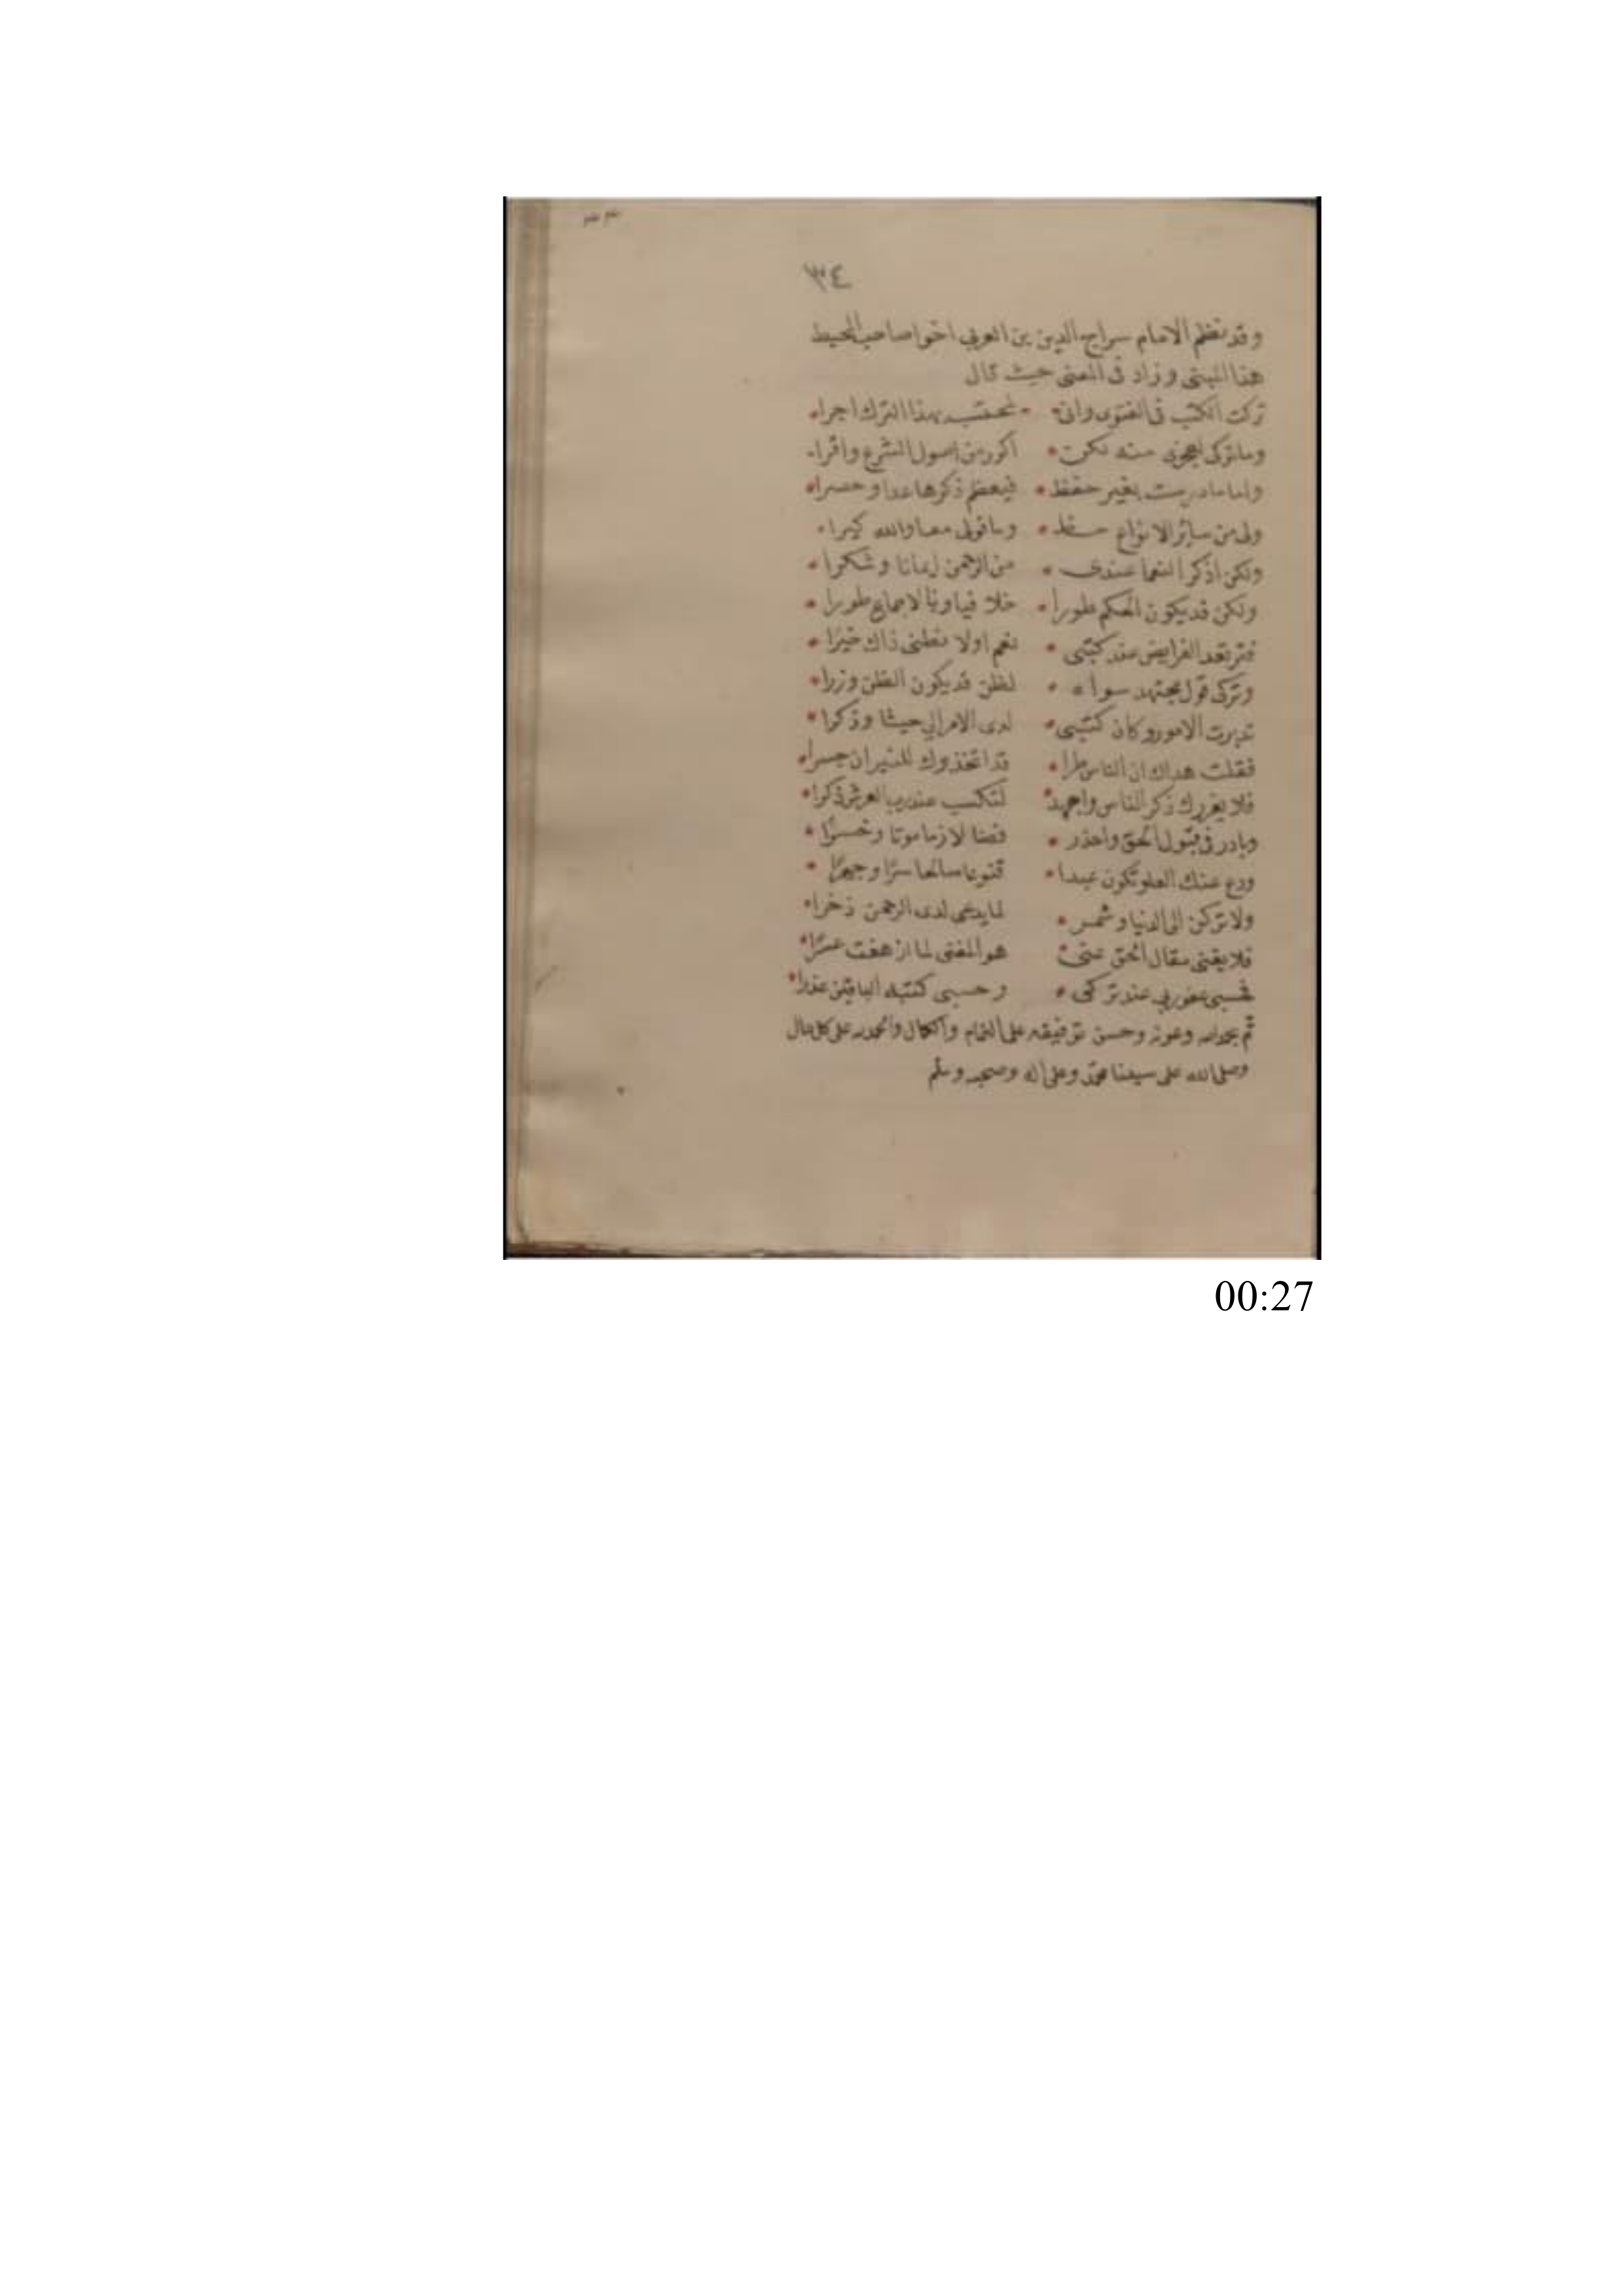 ٣٤
وقد نظم الامام سراج الدين بن العربي اخوا صاحب المحيط
هذا المبنى وزاد فى المعنى حيث قال
تركت الكتب فى الفتوى وانى * لمحتسب بهذا الترك اجرا
وما تركى لعجزى منه لكن * اكرر من اصول الشرع واقرا
واما ما درست بغير حفظ * فيعظم ذكرها عدا وحصرا
ولى من ساير الانواع حفظ * وما قولى معاذ الله كبرا
ولكن اذكر النعما عندى * من الرحمن ايمانا وشكرا
ولكن قد يكون الحكم طورا * خلافيا وبالاجماع طورا
الفرايض عند كتبى * نعم اولا ذاك خيرا
وتركى قول مجتهد سواه * لظن قد يكون الظن وزرا
تدبرت الامور وكان كتبى * لدى الامر وذكرا
فقلت هداك ان الناس طرا * قد اتخذوك للنيران جسرا
فلا يغررك ذكر الناس واجهد * لتكسب عند رب العرش ذكرا
وبادر فى قبول الحق واحذر * لازما موتا
ودع عنك العلو تكون عبدا * سرا وجهرا
ولا تركن الى الدنيا وشمر * لما يدعى لدى الرحمن ذخرا
فلا يغنى مقال الحق عنى * هو المفتى لما
فحسبى عفو ربى عند تركى * وحسبى كتبه الباقين عذرا
تم بحمد الله وعونه وحسن توفيقه على التمام والكمال والحمد لله على كل حال
وصلى الله على سيدنا محمد وعلى اله وصحبه وسلم
00:27